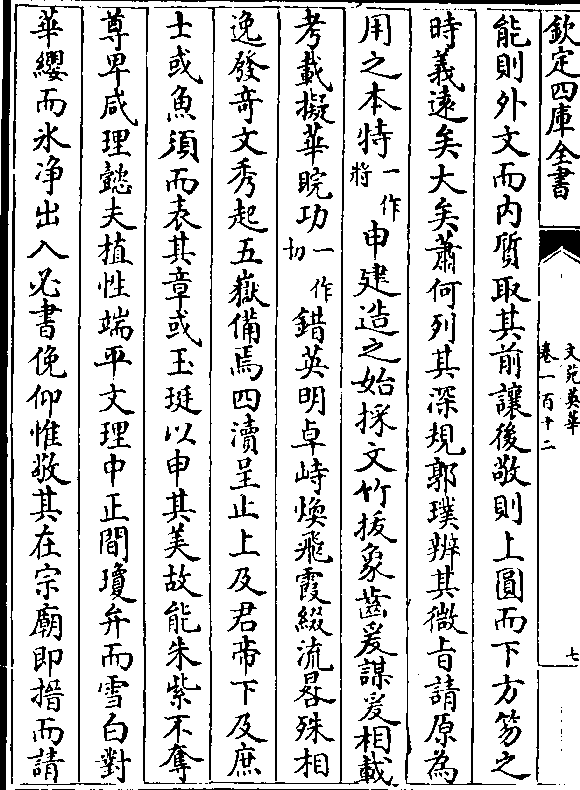 欽定四庫全書
文苑英華
卷一百十二
七
能則外文而内質取其前讓後敬則上圓而下方笏之
時義遠矣大矣蕭何列其深規郭璞辨其微旨請原為
用之本特一作將申建造之始採文竹拔象齒爰謀爰相載
考載擬華睆功一作切錯英明卓峙煥飛霞綴流晷殊相
逸發竒文秀起五嶽備焉四瀆呈止上及君帝下及庶
士或魚須而表其章或玉珽以申其美故能朱紫不奪
尊卑咸理懿夫植性端平文理中正間瓊弁而雪白對
華纓而氷净出入必書俛仰惟敬其在宗廟即搢而請